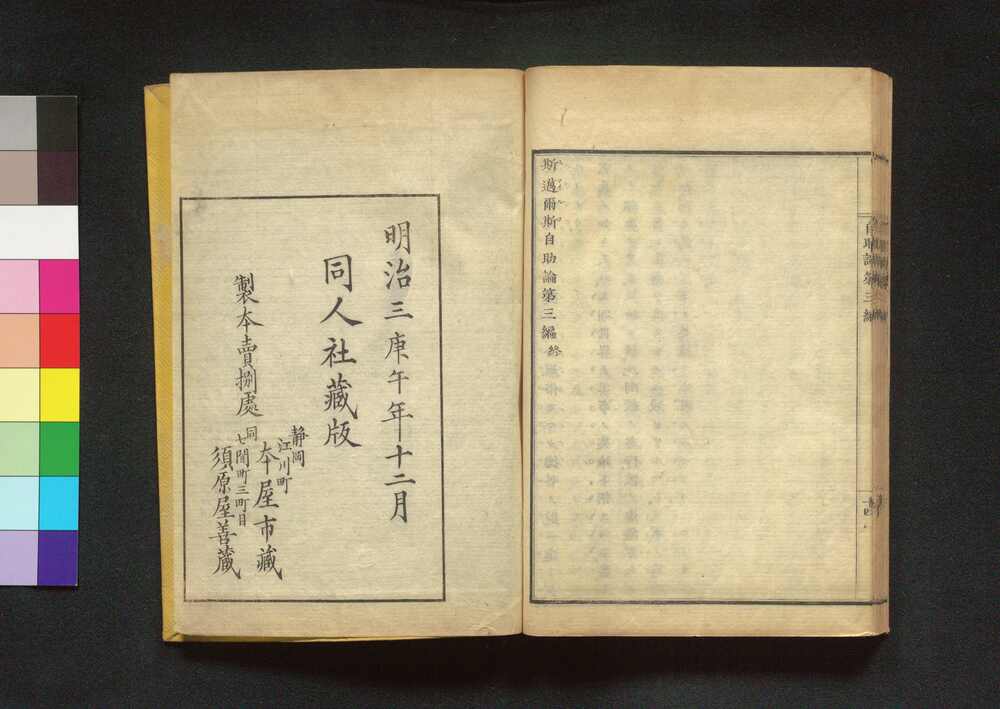 自助論第三編
斯邁爾斯自助論第三編終
明治三庚午年十二月
同人社藏版
製本賣捌處
靜岡
江川町
本屋市藏
同
七間町三町目
須原屋善藏